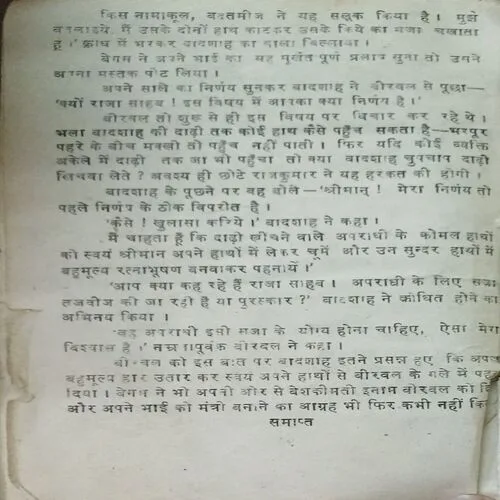 किस नामाकूल, बदतमीज ने यह सलूक किया है। मुझे
बतलाइये, मैं उसके दोनों हाथ काटकर उसके किये का मजा चखाता
हूं।' क्रोध में भरकर बादशाह का साला चिल्लाया।
बेगम ने अपने भाई का यह मूर्खता पूर्ण प्रलाप सुना तो उसने
अपना मस्तक पीट लिया।
अपने साले का निर्णय सुनकर बादशाह ने बीरबल से पूछा—
'क्यों राजा साहब! इस विषय में आपका क्या निर्णय है।'
बीरबल तो शुरू से ही इस विषय पर विचार कर रहे थे।
भला बादशाह की दाढ़ी तक कोई हाथ कैसे पहुँच सकता है—भरपूर
पहरे के बीच मक्खी तो पहुँच नहीं पाती। फिर यदि कोई व्यक्ति
अकेले में दाढ़ी तक जा भी पहुँचा तो क्या बादशाह चुपचाप दाढ़ी
खिंचवा लेते? अवश्य ही छोटे राजकुमार ने यह हरकत की होगी।
बादशाह के पूछने पर वह बोले—'श्रीमान्! मेरा निर्णय तो
पहले निर्णय के ठीक विपरीत है।
'कैसे! खुलासा करिये।' बादशाह ने कहा।
मैं चाहता हूँ कि दाढ़ी खींचने वाले अपराधी के कोमल हाथों
को स्वयं श्रीमान अपने हाथों में लेकर चूमें और उन सुन्दर हाथों में
बहुमूल्य रत्नाभूषण बनवाकर पहनायें।'
'आप क्या कह रहे हैं राजा साहब। अपराधी के लिए सजा
तजवीज की जा रही है या पुरस्कार?' बादशाह ने क्रोधित होने का
अभिनय किया।
'वह अपराधी इसी सजा के योग्य होना चाहिए, ऐसा मेरा
विश्वास है।' नम्रतापूर्वक बीरबल ने कहा।
बीरबल की इस बात पर बादशाह इतने प्रसन्न हुए कि अपना
बहुमूल्य हार उतार कर स्वयं अपने हाथों से बीरबल के गले में पह
दिया। बेगम ने भी अपनी ओर से बेशकीमती इनाम बीरबल को दि
और अपने भाई को मंत्री बनाने का आग्रह भी फिर कभी नहीं कि
समाप्त